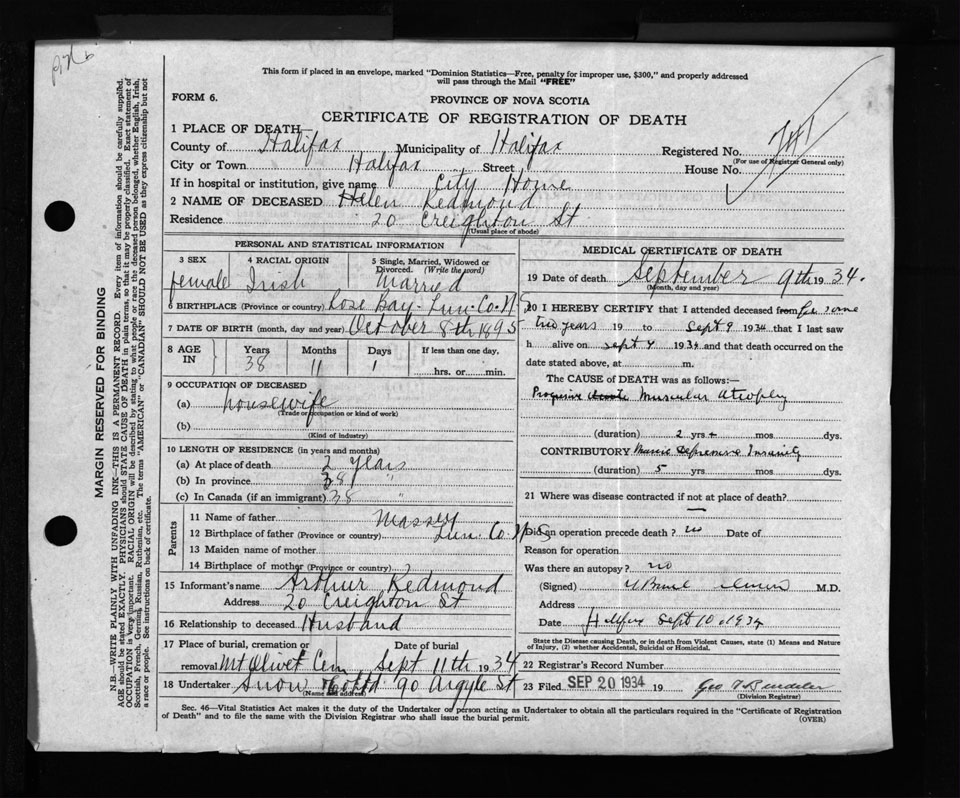 This form if placed in an envelope, marked "Dominion Statistics—Free, penalty for improper use, $300," and properly addressed
will pass through the Mail "FREE"
FORM 6.
PROVINCE OF NOVA SCOTIA
CERTIFICATE OF REGISTRATION OF DEATH
1 PLACE OF DEATH—
County of Halifax Municipality of Halifax Registered No.
(For use of Registrar General only)
City or Town Halifax Street House No.
If in hospital or institution, give name City Home
2 NAME OF DECEASED Helen Redmond
Residence 20 Creighton St
(Usual place of abode)
PERSONAL AND STATISTICAL INFORMATION
3 SEX 4 RACIAL ORIGIN 5 Single, Married, Widowed or
Divorced. (Write the word)
female Irish Married
6 BIRTHPLACE (Province or country) Rose Bay - Lun. Co. N S
7 DATE OF BIRTH (month, day and year) October 8th 1895
8 AGE IN Years Months Days If less than one day,
38 11 1 hrs. or min.
9 OCCUPATION OF DECEASED
(a) housewife
(Trade or occupation or kind of work)
(b)
(Kind of industry)
10 LENGTH OF RESIDENCE (in years and months)
(a) At place of death 2 Years
(b) In province 38 "
(c) In Canada (if an immigrant) 38 "
Parents
11 Name of father Massey
12 Birthplace of father (Province or country) Lun. Co. N S
13 Maiden name of mother
14 Birthplace of mother (Province or country)
15 Informant's name Arthur Redmond
Address 20 Creighton St
16 Relationship to deceased Husband
17 Place of burial, cremation or Date of burial
removal Mt Olivet Cem Sept 11th 1934
18 Undertaker Snow & Co Ltd 90 Argyle St
(Name and address)
MEDICAL CERTIFICATE OF DEATH
19 Date of death September 9th 1934.
(Month, day and year)
20 I HEREBY CERTIFY that I attended deceased from for some
two years 19 to Sept 9 1934 that I last saw
h alive on Sept 9 1934 and that death occurred on the
date stated above, at m.
The CAUSE of DEATH was as follows:—
Muscular Atrophy
(duration) 2 yrs + mos dys.
CONTRIBUTORY Manic Depressive Insanity
(duration) 5 yrs mos dys.
21 Where was disease contracted if not at place of death?
—
Did an operation precede death? no Date of
Reason for operation
Was there an autopsy? no
(Signed) M.D.
Address
Date Halifax Sept 10 1934
State the Disease causing Death, or in death from Violent Causes, state (1) Means and Nature
of Injury, (2) whether Accidental, Suicidal or Homicidal.
22 Registrar's Record Number
23 Filed SEP 20 1934 19 Geo
(Division Registrar)
Sec. 46—Vital Statistics Act makes it the duty of the Undertaker or person acting as Undertaker to obtain all the particulars required in the "Certificate of Registration
of Death" and to file the same with the Division Registrar who shall issue the burial permit.
(OVER)
MARGIN RESERVED FOR BINDING
N.B.—WRITE PLAINLY WITH UNFADING INK—THIS IS A PERMANENT RECORD. Every item of information should be carefully supplied.
AGE should be stated EXACTLY. PHYSICIANS should STATE CAUSE OF DEATH in plain terms, so that it may be properly classified. Exact statement of
OCCUPATION is very important. RACIAL ORIGIN will be described by stating to what people or race the deceased person belonged, whether English, Irish,
Scottish, French, German, Russian, Ruthenian, etc. The terms "AMERICAN" or "CANADIAN" SHOULD NOT BE USED as they express citizenship but not
a race or people. See instructions on back of certificate.